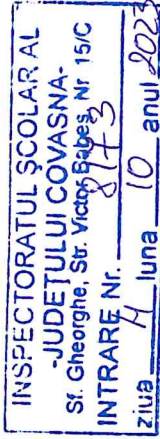 INSPECTORATUL ŞCOLAR AL
-JUDEŢULUI COVASNA-
Sf. Gheorghe, Str. Victor Babeş, Nr 15/C
INTRARE Nr. 8173
ziua luna 10 anul 2023